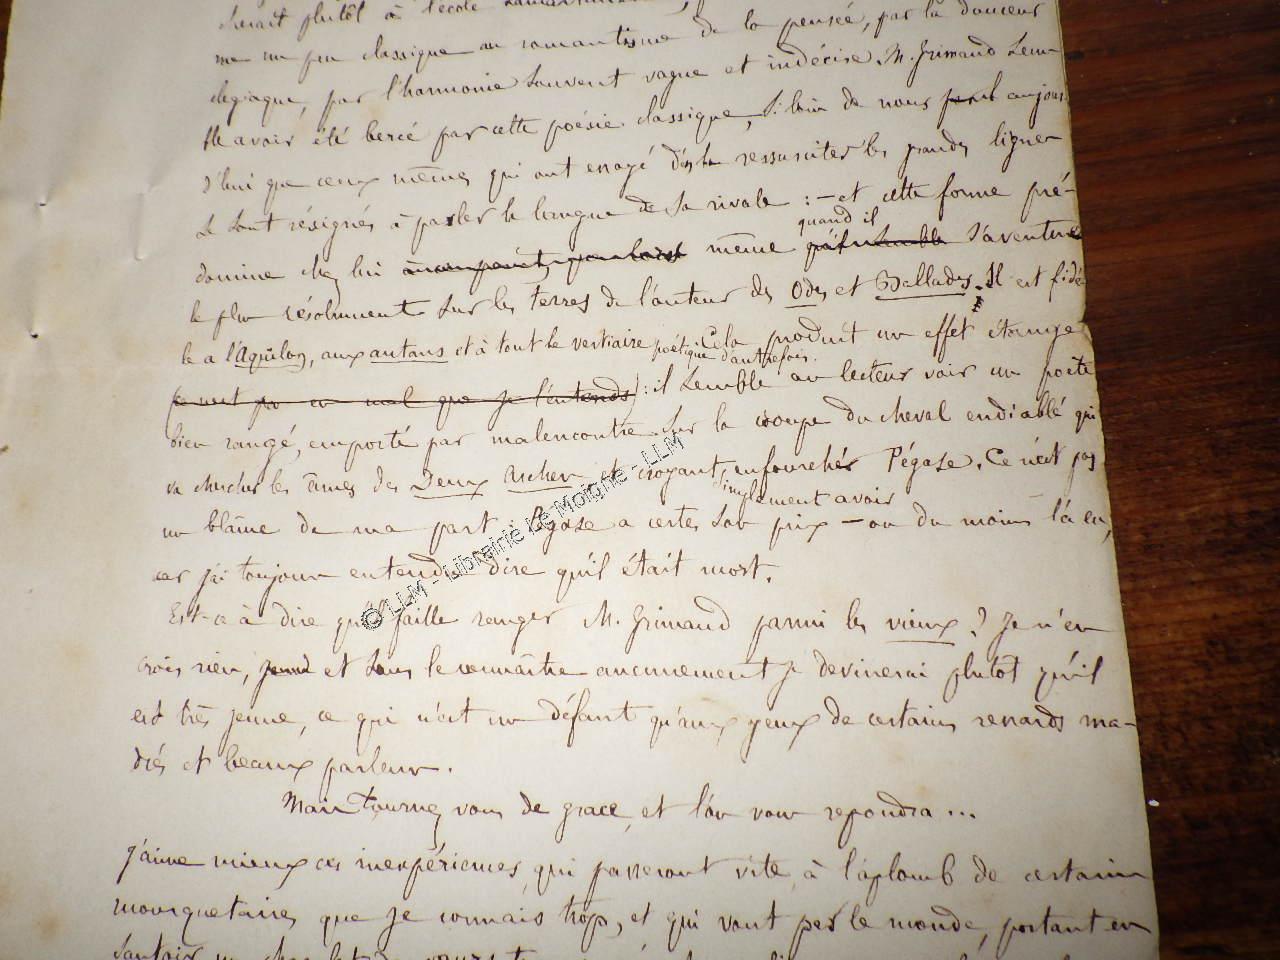 serait plutôt à l'école
me un peu classique au romantisme de la pensée, par la douceur
élégiaque, par l'harmonie souvent vague et indécise. M. Grimaud sem
ble avoir été bercé par cette poésie classique, si loin de nous aujour
d'hui que ceux mêmes qui ont essayé d'en ressusciter les grandes lignes
se sont résignés à parler la langue de sa rivale : — et cette forme pré-
quand il
domine chez lui même qu'il semble s'aventure
le plus résolument sur les terres de l'auteur des Odes et Ballades. Il est fidè
le à l'Aquilon, aux autans et à tout le vestiaire poétique d'autrefois. Cela produit un effet étrange
(ce n'est pas en mal que je l'entends) : il semble au lecteur voir un poète
bien rangé, emporté par malencontre sur la croupe du cheval endiablé qui
va chercher les âmes des Deux Archers et croyant enfourcher Pégase. Ce n'est pas
simplement avoir
un blâme de ma part. Pégase a certes son prix — ou du moins l'a eu,
car j'ai toujours entendu dire qu'il était mort.
Est-ce à dire qu'il faille ranger M. Grimaud parmi les vieux ? Je n'en
crois rien, et sans le connaître aucunement je devinerai plutôt qu'il
est très jeune, ce qui n'est un défaut qu'aux yeux de certains renards ma-
drés et beaux parleurs.
Mais tournez vous de grace, et l'on vous repondra ...
J'aime mieux ces inexpériences, qui passeront vite, à l'aplomb de certains
mousquetaires que je connais trop, et qui vont par le monde, portant en
sautoir un
© LLM - Librairie Le Moigne - LLM